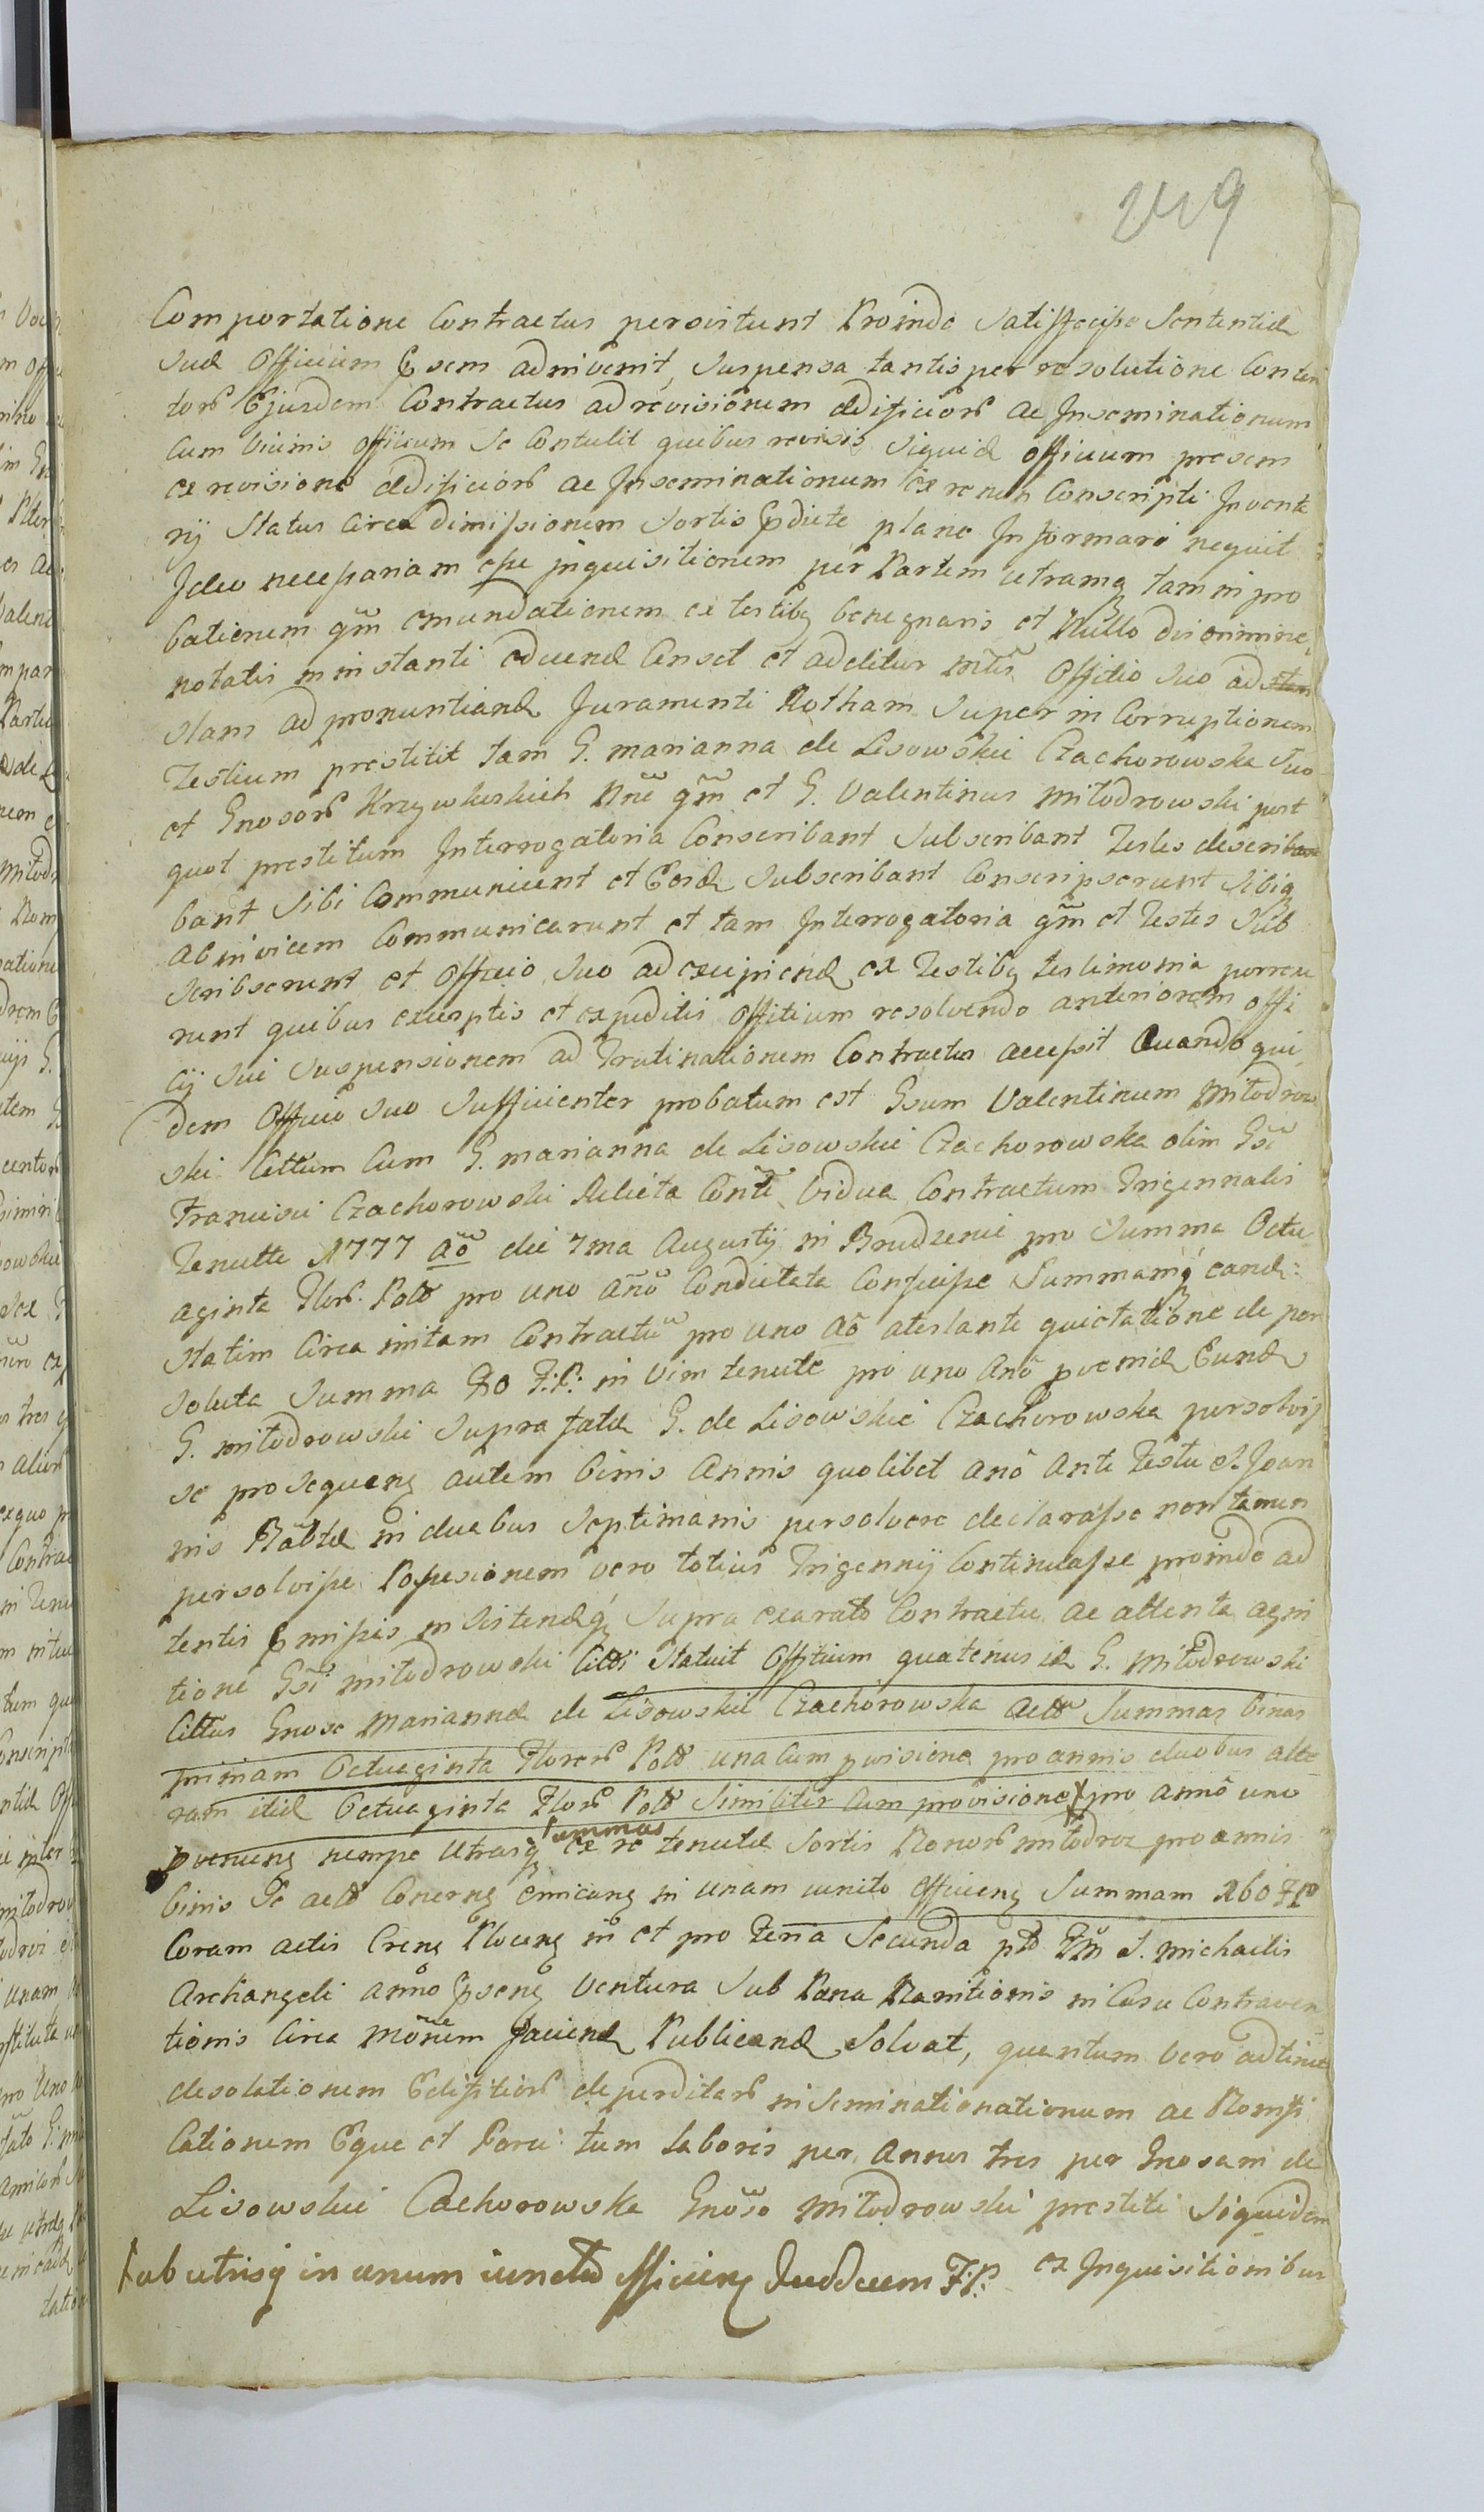 249
Comportatione Contractus persistunt Proinde satisfecisse Sententiæ
suæ Officium psem adnivenit, suspensa tantisper resolutione Conten
tors Ejusdem Contractus ad revisionem ædificiors ac Inseminationum
cum vicinis officium se Contulit quibus revisis siquid officium presem
ex revisione ædificiors ac Inseminationum ex re non Conscripti Inventa
rij Status circa dimissionem Sortis pdicte plane Informari nequit
Ideo necessariam esse inquisitionem per Partem utramq tam in pro
bationem qm emundationem ex testibq bene gnaris et Nullo discrimine
notatis in instanti educend Censet et adelitur mtis Offitio suo ad
stans ad pronuntiand Juramenti Rotham super in Corruptionem
Testium prestitit tam G. marianna de Lisowskie Czachorowska suo
et Gnosors Krzywkuskich Nne qm et G. Valentinus miłodrowski post
quot prestitum Interrogatoria Conscribant subscribant Testes describ
bant sibi Communicent et Eoid subscribant Conscripserunt sibiq
ab invicem Communicarunt et tam Interrogatoria qm et Testes sub
scribserunt et Officio suo ad excipiend ex Testibq testimonia porrexe
runt quibus exceptis et expeditis offitium resolvendo anteriorem offi
cij sui suspensionem ad Trutinationem Contractus accessit Quando qui
dem Officio suo sufficienter probatum est Gsum Valentinum miłodrow
ski Cittum Cum G. marianna de Lisowskie Czachorowska olim Gsi
Francisci Czachorowski Relicta Conte vidua Contractum Trigennalis
Tenutte 1777 ao die 7ma Augustij in Brudzenie pro summa Octu
aginta Flors. Polo pro uno Ano Condictata Confecisse Summamq eand:
statim circa initam Contractu pro uno ao atestante quictatione de per
soluta summa 80 F:P: in vim tenute pro uno Ano pvenid Eund
G. miłodrowski supra fatæ G. de Lisowskie Czachorowska persolvis
se pro sequenq autem binis annis quolibet ano Ante Festu S. Joan
nis Babtæ in duabus septimanis persolvere declarasse non tamen
persolvisse Possesionem vero totius Trigennij Continuasse proinde ad
tentis pmissis insistendq supra exarato Contractu ac attenta agni
tione Gsi miłodrowski Citti statuit Offitium quatenus id G. Miłodrowski
Cittus Gnose Mariannæ de Lisowskie Czachorowska acto summas binas
primam Octuaginta Florers Polo una cum pvisione pro annis duobus alte
ram itid Octuaginta Flors Polo similiter cum provisione pro anno uno
pvenienq nempe utrasq summas ex re tenutæ sortis Bonors miłodroz pro annis
binis Se acto Conernq emicanq in unam iunito efficienq Summam 160 FP
Coram actis Crenq Plocenq in et pro Feria Secunda pto Fm S. michaelis
Archangeli anno psenq Ventura sub Pæna Banitionis in Casu Contraven
tionis circa monem faciend Publicand solvat, quantum vero adtinet
desolationem Edifitiors deperditars in seminationationum ac Bonifi
cationem Eque et Farci: tum laboris per annos tres per Gnosam de
Lisowskie Czachorowska Gnoso miłodrowski prestiti siquidem
ex Inquisitionibus
ab utrisq in unum iuncto efficienq